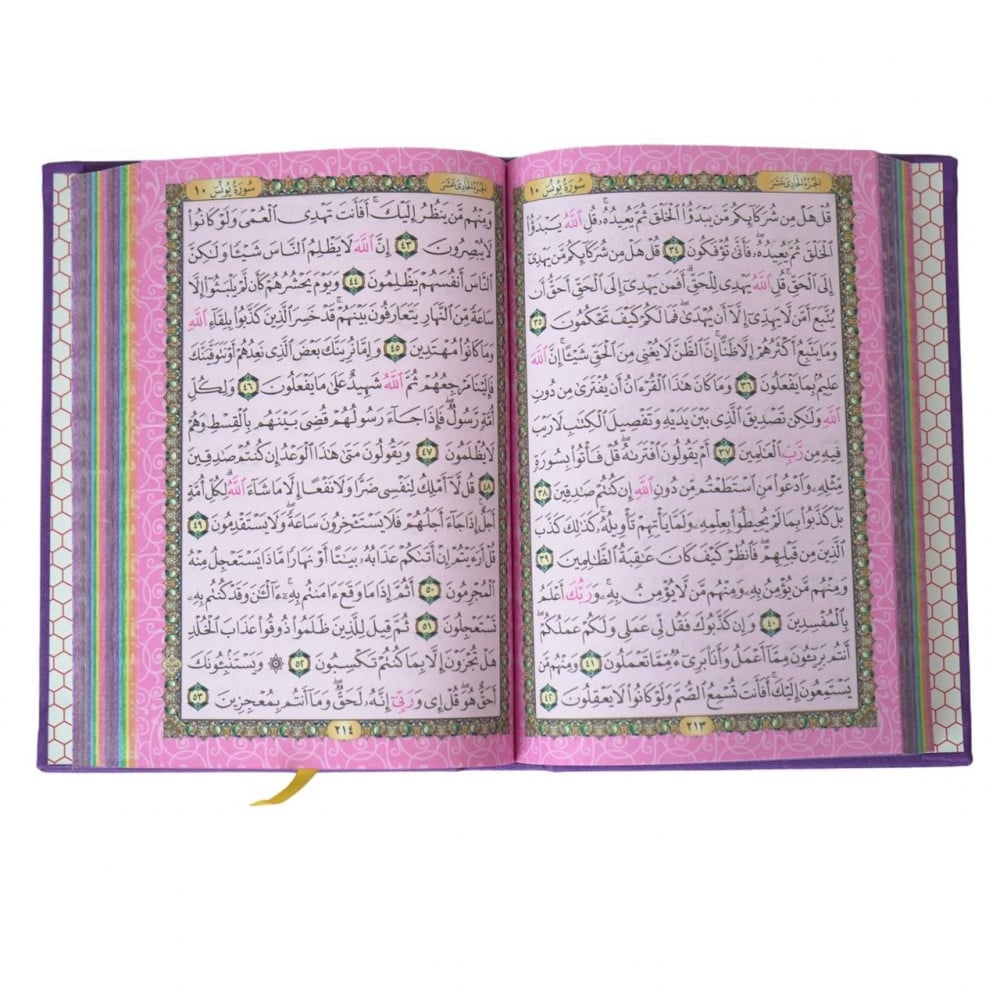 الجزء الحادي عشر
سورة يونس ١٠
قُلْ هَلْ مِن شُرَكَآئِكُم مَّن يَبْدَؤُا۟ ٱلْخَلْقَ ثُمَّ يُعِيدُهُۥ ۚ قُلِ ٱللَّهُ يَبْدَؤُا۟
ٱلْخَلْقَ ثُمَّ يُعِيدُهُۥ ۖ فَأَنَّىٰ تُؤْفَكُونَ ٣٤ قُلْ هَلْ مِن شُرَكَآئِكُم مَّن يَهْدِىٓ
إِلَى ٱلْحَقِّ ۚ قُلِ ٱللَّهُ يَهْدِى لِلْحَقِّ ۗ أَفَمَن يَهْدِىٓ إِلَى ٱلْحَقِّ أَحَقُّ أَن
يُتَّبَعَ أَمَّن لَّا يَهِدِّىٓ إِلَّآ أَن يُهْدَىٰ ۖ فَمَا لَكُمْ كَيْفَ تَحْكُمُونَ ٣٥
وَمَا يَتَّبِعُ أَكْثَرُهُمْ إِلَّا ظَنًّا ۚ إِنَّ ٱلظَّنَّ لَا يُغْنِى مِنَ ٱلْحَقِّ شَيْـًٔا ۚ إِنَّ ٱللَّهَ
عَلِيمٌۢ بِمَا يَفْعَلُونَ ٣٦ وَمَا كَانَ هَٰذَا ٱلْقُرْءَانُ أَن يُفْتَرَىٰ مِن دُونِ
ٱللَّهِ وَلَٰكِن تَصْدِيقَ ٱلَّذِى بَيْنَ يَدَيْهِ وَتَفْصِيلَ ٱلْكِتَٰبِ لَا رَيْبَ
فِيهِ مِن رَّبِّ ٱلْعَٰلَمِينَ ٣٧ أَمْ يَقُولُونَ ٱفْتَرَىٰهُ ۖ قُلْ فَأْتُوا۟ بِسُورَةٍ
مِّثْلِهِۦ وَٱدْعُوا۟ مَنِ ٱسْتَطَعْتُم مِّن دُونِ ٱللَّهِ إِن كُنتُمْ صَٰدِقِينَ ٣٨
بَلْ كَذَّبُوا۟ بِمَا لَمْ يُحِيطُوا۟ بِعِلْمِهِۦ وَلَمَّا يَأْتِهِمْ تَأْوِيلُهُۥ ۚ كَذَٰلِكَ كَذَّبَ
ٱلَّذِينَ مِن قَبْلِهِمْ ۖ فَٱنظُرْ كَيْفَ كَانَ عَٰقِبَةُ ٱلظَّٰلِمِينَ ٣٩
وَمِنْهُم مَّن يُؤْمِنُ بِهِۦ وَمِنْهُم مَّن لَّا يُؤْمِنُ بِهِۦ ۚ وَرَبُّكَ أَعْلَمُ
بِٱلْمُفْسِدِينَ ٤٠ وَإِن كَذَّبُوكَ فَقُل لِّى عَمَلِى وَلَكُمْ عَمَلُكُمْ ۖ
أَنتُم بَرِيٓـُٔونَ مِمَّآ أَعْمَلُ وَأَنَا۠ بَرِىٓءٌ مِّمَّا تَعْمَلُونَ ٤١ وَمِنْهُم مَّن
يَسْتَمِعُونَ إِلَيْكَ ۚ أَفَأَنتَ تُسْمِعُ ٱلصُّمَّ وَلَوْ كَانُوا۟ لَا يَعْقِلُونَ ٤٢
٢١٣
الجزء الحادي عشر
سورة يونس ١٠
وَمِنْهُم مَّن يَنظُرُ إِلَيْكَ ۚ أَفَأَنتَ تَهْدِى ٱلْعُمْىَ وَلَوْ كَانُوا۟
لَا يُبْصِرُونَ ٤٣ إِنَّ ٱللَّهَ لَا يَظْلِمُ ٱلنَّاسَ شَيْـًٔا وَلَٰكِنَّ
ٱلنَّاسَ أَنفُسَهُمْ يَظْلِمُونَ ٤٤ وَيَوْمَ يَحْشُرُهُمْ كَأَن لَّمْ يَلْبَثُوٓا۟ إِلَّا
سَاعَةً مِّنَ ٱلنَّهَارِ يَتَعَارَفُونَ بَيْنَهُمْ ۚ قَدْ خَسِرَ ٱلَّذِينَ كَذَّبُوا۟ بِلِقَآءِ ٱللَّهِ
وَمَا كَانُوا۟ مُهْتَدِينَ ٤٥ وَإِمَّا نُرِيَنَّكَ بَعْضَ ٱلَّذِى نَعِدُهُمْ أَوْ نَتَوَفَّيَنَّكَ
فَإِلَيْنَا مَرْجِعُهُمْ ثُمَّ ٱللَّهُ شَهِيدٌ عَلَىٰ مَا يَفْعَلُونَ ٤٦ وَلِكُلِّ
أُمَّةٍ رَّسُولٌ ۖ فَإِذَا جَآءَ رَسُولُهُمْ قُضِىَ بَيْنَهُم بِٱلْقِسْطِ وَهُمْ
لَا يُظْلَمُونَ ٤٧ وَيَقُولُونَ مَتَىٰ هَٰذَا ٱلْوَعْدُ إِن كُنتُمْ صَٰدِقِينَ
٤٨ قُل لَّآ أَمْلِكُ لِنَفْسِى ضَرًّا وَلَا نَفْعًا إِلَّا مَا شَآءَ ٱللَّهُ ۗ لِكُلِّ أُمَّةٍ
أَجَلٌ ۚ إِذَا جَآءَ أَجَلُهُمْ فَلَا يَسْتَـْٔخِرُونَ سَاعَةً ۖ وَلَا يَسْتَقْدِمُونَ ٤٩
قُلْ أَرَءَيْتُمْ إِنْ أَتَىٰكُمْ عَذَابُهُۥ بَيَٰتًا أَوْ نَهَارًا مَّاذَا يَسْتَعْجِلُ مِنْهُ
ٱلْمُجْرِمُونَ ٥٠ أَثُمَّ إِذَا مَا وَقَعَ ءَامَنتُم بِهِۦٓ ۚ ءَآلْـَٰٔنَ وَقَدْ كُنتُم بِهِۦ
تَسْتَعْجِلُونَ ٥١ ثُمَّ قِيلَ لِلَّذِينَ ظَلَمُوا۟ ذُوقُوا۟ عَذَابَ ٱلْخُلْدِ
هَلْ تُجْزَوْنَ إِلَّا بِمَا كُنتُمْ تَكْسِبُونَ ٥٢ ۞ وَيَسْتَنۢبِـُٔونَكَ
أَحَقٌّ هُوَ ۖ قُلْ إِى وَرَبِّىٓ إِنَّهُۥ لَحَقٌّ ۖ وَمَآ أَنتُم بِمُعْجِزِينَ ٥٣
٢١٤